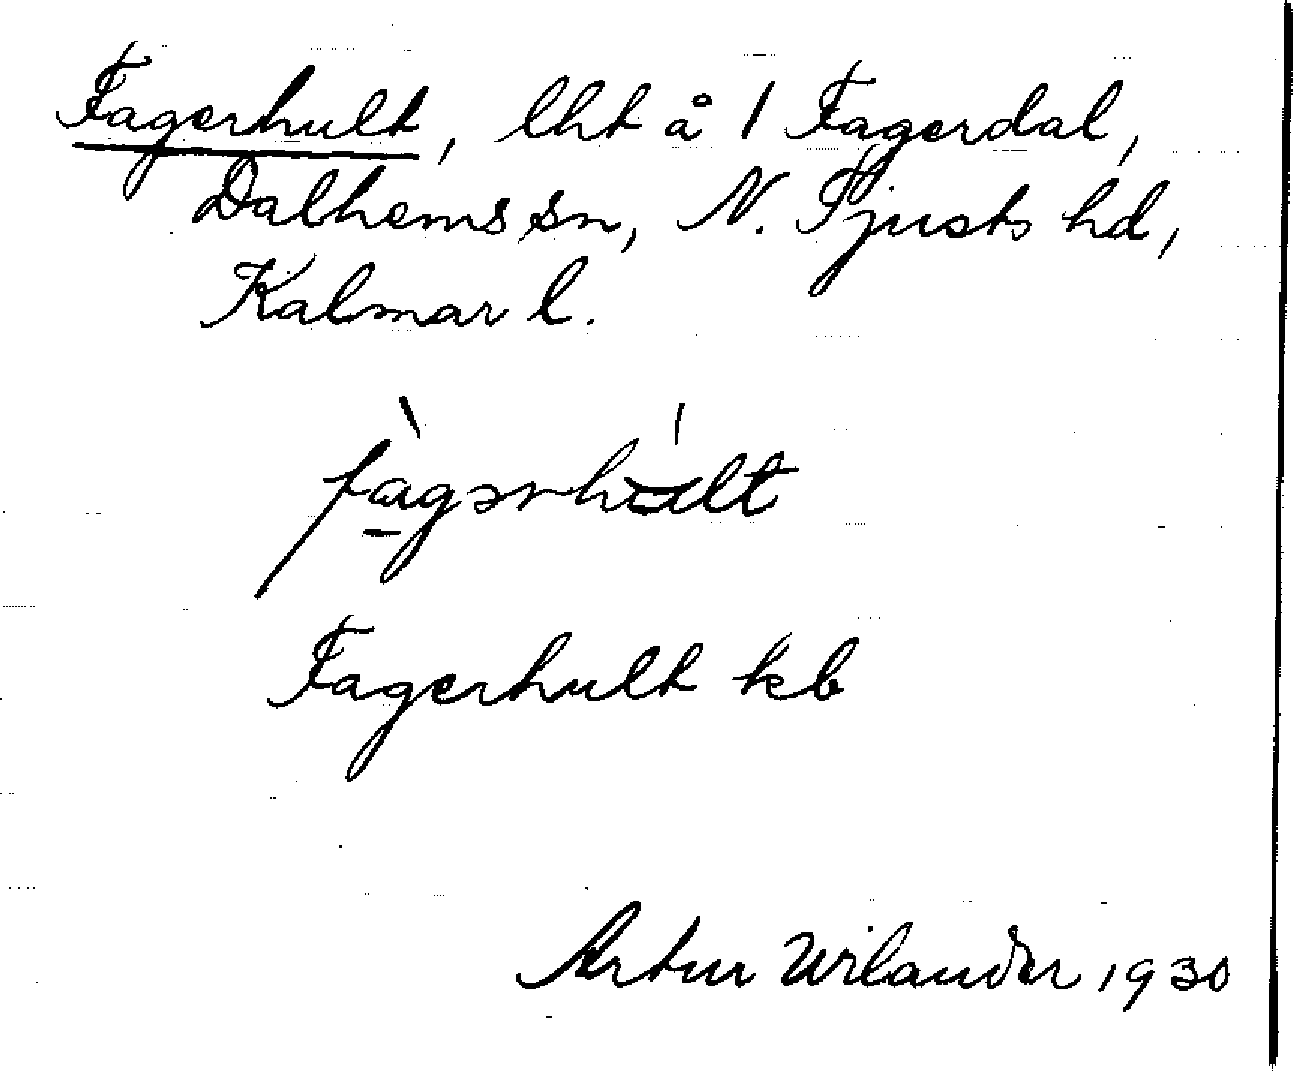 Fagerhult, lht å 1 Fagerdal,
Dalhems sn, N. Tjusts hd,
Kalmar l.
fàgərhált
Fagerhult kb
Artur Wilander 1930